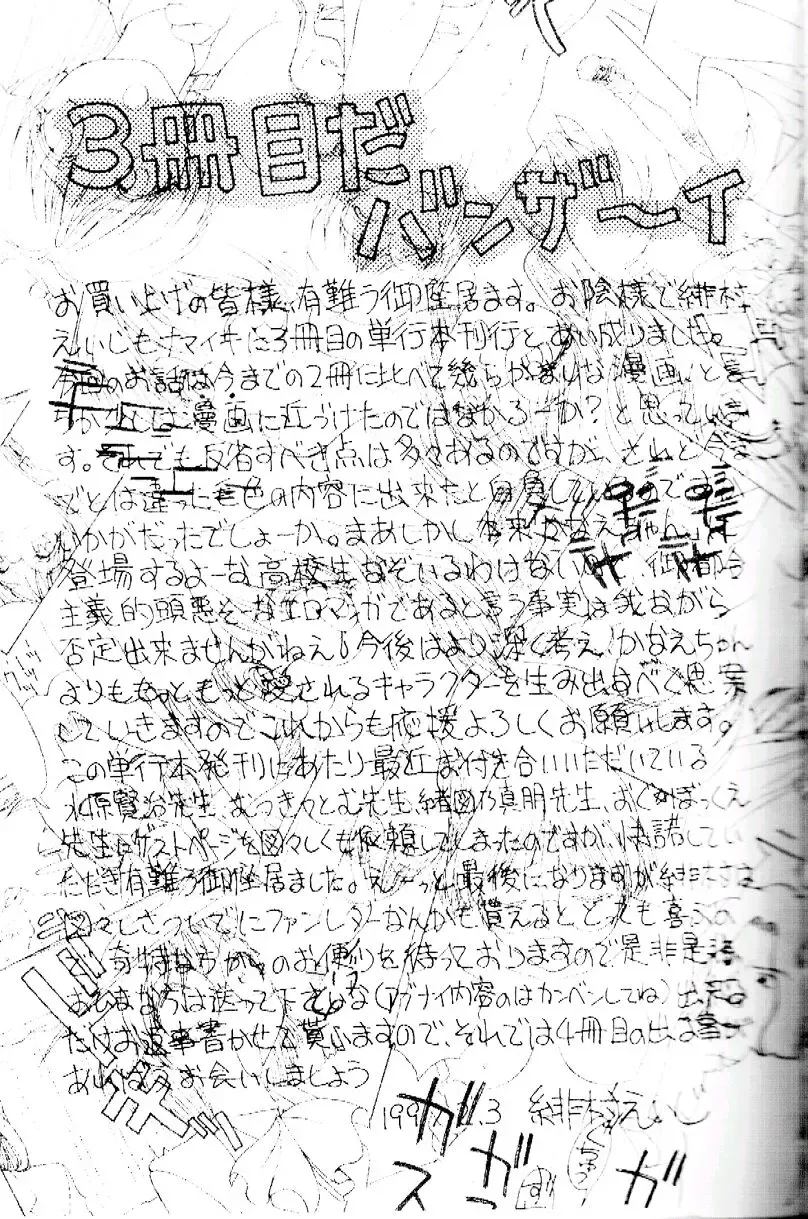 3冊目だ
バンザ〜イ
お買い上げの皆様、有難う御座居ます。お陰様で緋村
えいじもナマイキに3冊目の単行本刊行とあい成りました。
のお話は今までの2冊に比べて幾らかまりな漫画、と言
漫画に近づけたのではなかろーか?と思っていま
す。それでも反省すべき点は多々あるのですが、それと今ま
でとは違った色の内容に出来たと自負しているのですが
いかがだったでしょーか。まあしかし本来かなえちゃんに
登場するよーな高校生なぞいるわけない 御都合
主義的頭悪そーなエロマンガであると言う事実は我ながら
否定出来ませんがねえ。今後はより深く考え!かなえちゃん
よりももっともっと愛されるキャラクターを生み出すべく思案
していきますのでこれからも応援よろしくお願いします。
この単行本発刊にあたり最近お付き合いいただいている
水原賢治先生、むつきつとむ先生、緒図乃真朋先生、おぐぉぼっくえ
先生にゲストページを図々しくも依頼してしまったのですが、快諾してい
ただき有難う御座居ました。え〜っと最後になりますが緋村は
図々しさついでにファンレターなんかも貰えるととても喜ぶの
で、奇特な方からのお便りを待っておりますので是非是非
おひまな方は送って下さいな(アブナイ内容のはカンベンしてね)出来る
だけお返事書かせて貰いますので、それでは4冊目の出る事が
あればまたお会いしましょう
緋村えいじ
ガ
ガ
ス
ガ